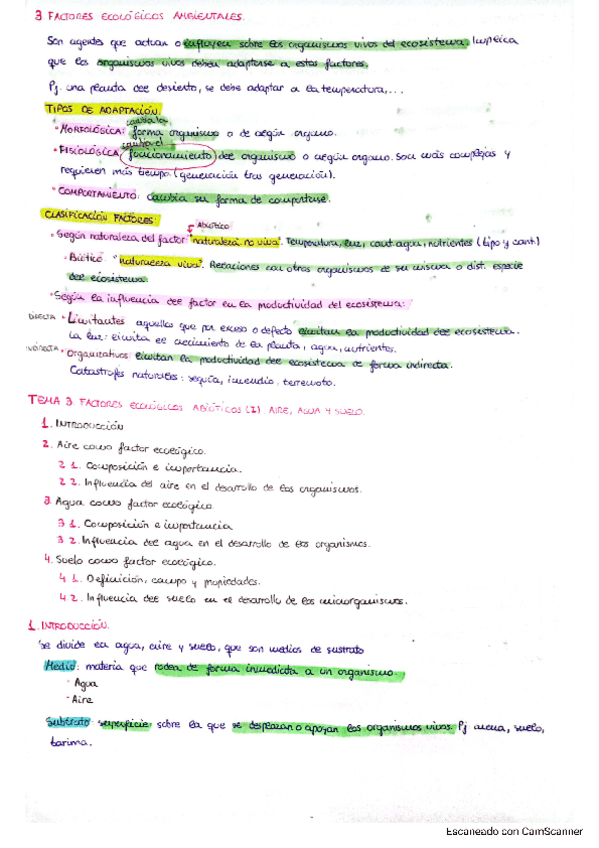 3 FACTORES ECOLÓGICOS AMBIENTALES.
Son agentes que actuan o influyen sobre los organismos vivos del ecosistema. Implica
que los organismos vivos deben adaptarse a estos factores.
Pj. una planta del desierto, se debe adaptar a la temperatura,...
TIPOS DE ADAPTACIÓN.
cambia la
· MORFOLÓGICA: forma organismo o de algún organo.
· FISIOLÓGICA: funcionamiento del organismo o algún organo. Son más complejas y
requieren más tiempo (generación tras generación).
· COMPORTAMIENTO: cambia su forma de comportarse.
CLASIFICACIÓN FACTORES:
Abiótico
· Según naturaleza del factor "naturaleza no viva". Temperatura, luz, cant. agua, nutrientes (tipo y cant.)
· Biótico "naturaleza viva". Relaciones con otros organismos de su misma o dist. especie
del ecosistema.
· Según la influencia del factor en la productividad del ecosistema:
DIRECTA · Limitantes aquellos que por exceso o defecto limitan la productividad del ecosistema.
La luz: limita el crecimiento de la planta, agua, nutrientes.
INDIRECTA · Organizativos limitan la productividad del ecosistema de forma indirecta.
Catastrofes naturales: sequía, incendio, terremoto.
TEMA 3 FACTORES ECOLÓGICOS ABIÓTICOS (I). AIRE, AGUA Y SUELO.
1. INTRODUCCIÓN
2. Aire como factor ecológico.
2 1. Composición e importancia.
2 2. Influencia del aire en el desarrollo de los organismos.
3. Agua como factor ecológico
3 1. Composición e importancia
3 2. Influencia del agua en el desarrollo de los organismos.
4. Suelo como factor ecológico.
4 1. Definición, campo y propiedades.
4 2. Influencia del suelo en el desarrollo de los microorganismos.
1. INTRODUCCIÓN.
Se divide en agua, aire y suelo, que son medios de sustrato
Medio: materia que rodea de forma inmediata a un organismo.
· Agua
· Aire
Substrato: superficie sobre la que se desplazan o apoyan los organismos vivos. Pj arena, suelo,
tarima.
Escaneado con CamScanner